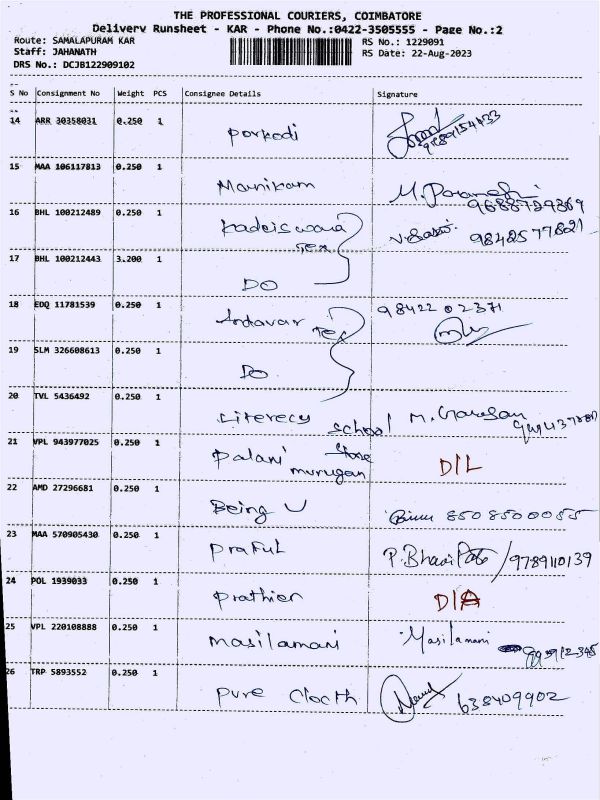 THE PROFESSIONAL COURIERS, COIMBATORE
Delivery Runsheet - KAR - Phone No.:0422-3505555 - Page No.:2
Route: SAMALAPURAM KAR RS No.: 1229091
Staff: JAHANATH RS Date: 22-Aug-2023
DRS No.: DCJB122909102
S No Consignment No Weight PCS Consignee Details Signature
14 ARR 30358031 0.250 1 Porkodi
15 MAA 106117813 0.250 1 Manikam 9688729369
16 BHL 100212489 0.250 1 Kadeiswara Tex 9842577821
17 BHL 100212443 3.200 1 DO
18 EDQ 11781539 0.250 1 Andavar Tex 98422 02371
19 SLM 326608613 0.250 1 DO
20 TVL 5436492 0.250 1 Literecy School
21 VPL 943977025 0.250 1 Palani Murugan Store D/L
22 AMD 27296681 0.250 1 Being U 8508500055
23 MAA 570905430 0.250 1 Praful 9789110139
24 POL 1939033 0.250 1 D/A
25 VPL 220108888 0.250 1 Masilamani Masilamani
26 TRP 5893552 0.250 1 Pure Clocth 638409902